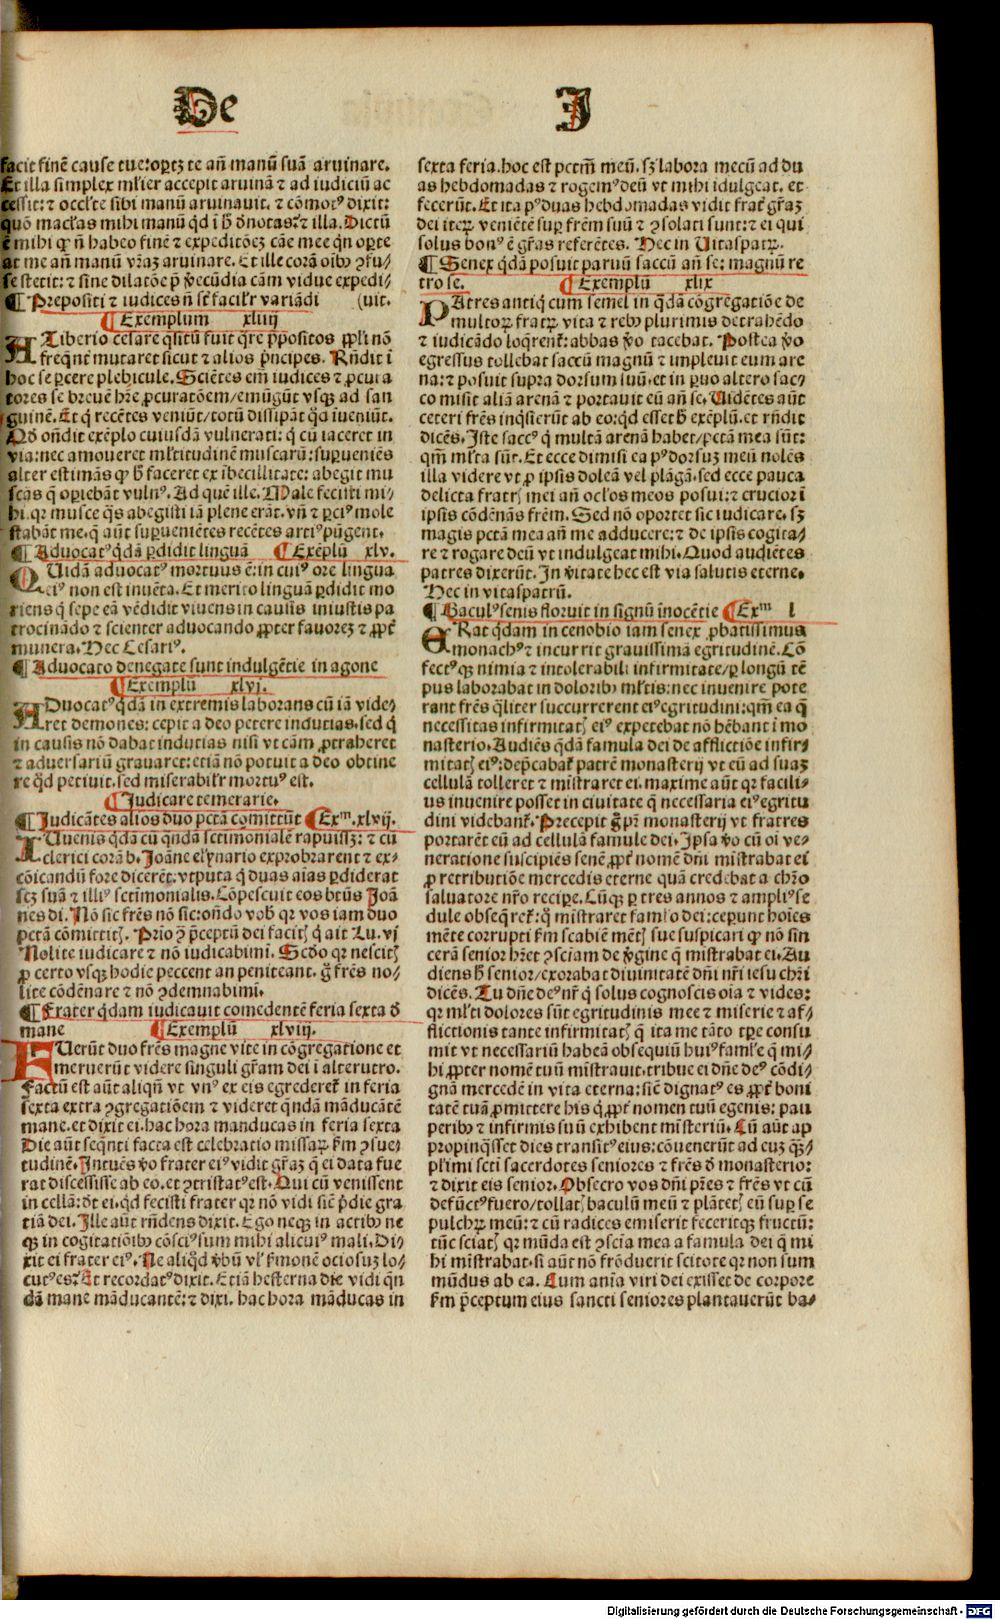 De
I
facit finē cause tue: oꝑtꝫ te añ manū suā aruinare.
Et illa simplex mḷier accepit aruinā ⁊ ad iudiciū ac
cessit: ⁊ occḷte sibi manū aruinauit. ⁊ cōmotꝰ dixit:
quō macḷas mihi manū qđ ī h̄ đnotas.⁊ illa. Dictū
ē mihi ꝙ ñ habeo finē ⁊ expeditōeꝫ cāe mee qñ oꝑte
at me añ manū vr̄aꝫ aruinare. Et ille corā oībꝫ ꝯfu⸗
se stetit: ⁊ sine dilatōe p̄ v̄ecūdia cām vidue expedi⸗
(uit.
¶ Prepositi ⁊ iudices ñ sūt faciḷr variādi
¶ Exemplum xliiij
A Tiberio cesare q̄situ fuit q̄re p̄positos ꝓpḷi nō
freqn̄t mutaret sicut ⁊ alios p̄ncipes. Rñdit ī
hoc se ꝑcere plebicule. Sciētes em̄ iudices ⁊ ꝓcura
tores se breuē hr̄e ꝓcuratōem/emūgūt vsqꝫ ad san
guinē. Et q̇ recētes veniūt/totū dissipāt q̇a iueniūt.
Qđ oñdit exēplo cuiusdā vulnerati: q̇ cū iaceret in
via: nec amoueret mḷtitudinē muscarū: suꝑueniēs
alter estimās ꝙ h̄ faceret ex ībecillitate: abegit mu
scās q̄ oꝑiebāt vulnꝰ. Ad quē ille. Male fecisti mi⸗
hi. qꝛ musce q̄s abegisti iā plene erāt. vñ ⁊ ꝑciꝰ mole
stabāt me. q̄ aūt suꝑuenientes recētes artiꝰ pūgent.
¶ Aduocatꝰ q̇dā ꝑdidit linguā ¶ Exēplū xlv.
QUidā aduocatꝰ mortuus ē: in cuiꝰ ore lingua
eiꝰ non est inuēta. Et merito linguā ꝑdidit mo
riens q̇ sepe eā vēdidit viuens in causis iniustis pa
trocinādo ⁊ scienter aduocando ꝓpter fauoreꝫ ⁊ ꝓpt̄
munera. Hec Cesariꝰ.
¶ Aduocato denegate sunt indulgētie in agone
¶ Exemplū xlvj.
ADuocatꝰ q̇dā in extremis laborans cū iā vide⸗
ret demones: cepit a deo petere inducias. sed q̇
in causis nō dabat inducias nisi vt cām ꝓtraheret
⁊ aduersariū grauaret: etiā nō potuit a deo obtine
re q̇d petiuit. sed miserabiḷr mortuꝰ est.
¶ Iudicare temerarie.
¶ Iudicātes alios duo pctā cōmittūt ¶ Exᵐ. xlvij.
IUuenis q̇dā cū q̇nda sctimonialē rapuissꝫ: ⁊ cū
clerici corā b. Joāne elynario exprobrarent ⁊ ex⸗
cōicandū fore dicerēt. vtputa q̇ duas aīas ꝑdiderat
seꝫ suā ⁊ illiꝰ sctimonialis. Cōpescuit eos btūs Joā
nes dī. Nō sic fr̄es nō sic: oñdo vob̄ qꝛ vos iam duo
pctā cōmittitꝭ. Prio ꝯ p̄ceptū dei facitꝭ q̇ ait Lu. vj
Nolite iudicare ⁊ nō iudicabimī. Scđo qꝛ nescitꝭ
ꝓ certo vsqꝫ hodie peccent an peniteant. g̊ fr̄es no⸗
lite cōdēnare ⁊ nō ꝯdemnabimī.
¶ Frater q̇dam iudicauit comedentē feria sexta đ
mane ¶ Exemplū xlviij.
FUerūt duo fr̄es magne vite in cōgregatione et
meruerūt videre singuli gr̄am dei ī alterutro.
Factū est aūt aliqñ vt vnꝰ ex eis egrederet̄ in feria
sexta extra ꝯgregatiōem ⁊ videret q̇ndā māducātē
mane. et dixit ei. hac hora manducas in feria sexta
Die aūt seqn̄ti facta est celebratio missaꝝ ẜm ꝯsue⸗
tudinē. Intuēs v̊o frater eiꝰ vidit gr̄aꝫ q̄ ei data fue
rat discessisse ab eo. et ꝯtristatꝰ est. Qui cū venissent
in cellā: đt ei. qđ fecisti frater qꝛ nō vidi sic̄ p̄die gra
tiā dei. Ille aūt rn̄dens dixit. Ego neqꝫ in actibꝫ ne
qꝫ in cogitatiōibꝫ cōsciꝰ sum mihi alicuiꝰ mali. Di⸗
xit ei frater eiꝰ. Ne aliq̇d v̄bū vḷ ẜmonē ociosuꝫ lo⸗
cutꝰ es? Et recordatꝰ dixit. Etiā hesterna die vidi q̇n
dā mane māducantē: ⁊ dixi. hac hora māducas in
sexta feria. hoc est pctm̄ meū. sꝫ labora mecū ad du
as hebdomadas ⁊ rogemꝰ deū vt mihi īdulgeat. et
fecerūt. Et ita pꝰ duas hebdomadas vidit frat̄ gr̄aꝫ
dei iteꝝ veniētē suꝑ fr̄em suū ⁊ ꝯsolati sunt: ⁊ ei qui
solus bonꝰ ē gr̄as referētes. Hec in Uitaspatꝝ.
¶ Senex q̇dā posuit paruū saccū añ se: magnū re
tro se. ¶ Exemplū xlix
PAtres antiq̇ cum semel in q̇dā cōgregatiōe de
multoꝝ fratꝝ vita ⁊ rebꝫ plurimis detrahēdo
⁊ iudicādo loq̄rent̄: abbas v̊o tacebat. Postea v̊o
egressus tollebat saccū magnū ⁊ impleuit eum are
na: ⁊ posuit supra dorsum suū. et in ꝑuo altero sac⸗
co misit aliā arenā ⁊ portauit eū añ se. Uidētes aūt
ceteri fr̄es inq̇sierūt ab eo: qđ esset h̄ exēplū. et rn̄dit
dicēs. Iste saccꝰ q̇ multā arenā habet/pctā mea sūt:
qm̄ mḷta sūt. Et ecce dimisi ea pꝰ dorsuꝫ meū nolēs
illa videre vt ꝓ ipsis doleā vel plāgā. sed ecce pauca
delicta fratrꝭ mei añ ocḷos meos posui: ⁊ crucior ī
ipsis cōdēnās fr̄em. Sed nō oportet sic iudicare. sꝫ
magis pctā mea añ me adducere: ⁊ de ipsis cogita⸗
re ⁊ rogare deū vt indulgeat mihi. Quod audiētes
patres dixerūt. In v̄itate hec est via salutis eterne.
Hec in vitaspatrū.
¶ Baculꝰ senis floruit in signū īnocētie ¶ Exᵐ l
ERat q̇dam in cenobio iam senex ꝓbatissimus
monachꝰ ⁊ incurrit grauissimā egritudinē. Cō
fectꝰ qꝫ nimia ⁊ intolerabili infirmitate/ꝑ longū tē
pus laborabat in doloribꝫ mḷtis: nec inuenire pote
rant fr̄es q̄liter succurrerent eiꝰ egritudini: qm̄ ea q̄
necessitas infirmitatꝭ eiꝰ expetebat nō hēbant ī mo
nasterio. Audiēs q̄dā famula dei de afflictiōe infir⸗
mitatꝭ eiꝰ: dep̄cabat̄ patrē monasterij vt eū ad suaꝫ
cellulā tolleret ⁊ mīstraret ei. maxime aūt qꝛ facili⸗
us inuenire posset in ciuitate q̄ necessaria eiꝰ egritu
dini videbant̄. Precepit g̊ pr̄ monasterij vt fratres
portarēt eū ad cellulā famule dei. Ipsa v̊o cū oī ve⸗
neratione suscipiēs senē ꝓpt̄ nomē dn̄i mīstrabat ei
ꝓ retributiōe mercedis eterne quā credebat a chr̄o
saluatore nr̄o reciꝑe. Cūqꝫ ꝑ tres annos ⁊ ampliꝰ se
dule obseq̄ret̄: q̄ mīstraret famlo dei: ceperunt hoīes
mēte corrupti ẜm scabiē mētꝭ sue suspicari ꝙ nō sin
cerā senior hr̄et ꝯsciam de v̄gine q̄ mīstrabat ei. Au
diens h̄ senior/exorabat diuinitatē dn̄i nr̄i iesu chr̄i
dicēs. Tu dn̄e deꝰ nr̄ q̇ solus cognoscis oīa ⁊ vides:
qꝛ mḷti dolores sūt egritudinis mee ⁊ miserie ⁊ af⸗
flictionis tante infirmitatꝭ q̄ ita me tāto tꝑe consu
mit vt necessariū habeā obsequiū huiꝰ famḷe q̄ mi⸗
hi ꝓpter nomē tuū mīstrauit. tribue ei dn̄e deꝰ cōdi⸗
gnā mercedē in vita eterna: sic̄ dignatꝰ es ꝓpt̄ boni
tatē tuā ꝓmittere his q̇ ꝓpt̄ nomen tuū egenis: pau
peribꝫ ⁊ infirmis suū exhibent mīsteriū. Cū aūt ap
propinq̄sset dies transitꝰ eius: cōuenerūt ad euꝫ q̄ꝫ⸗
pḷimi scti sacerdotes seniores ⁊ fr̄es đ monasterio:
⁊ dixit eis senior. Obsecro vos dn̄i pr̄es ⁊ fr̄es vt cū
defūctꝰ fuero/tollatꝭ baculū meū ⁊ plātetꝭ eū suꝑ se
pulchꝝ meū: ⁊ cū radices emiserit feceritqꝫ fructū:
tūc sciatꝭ qꝛ mūda est ꝯscīa mea a famula dei q̄ mi
hi mīstrabat. si aūt nō frōduerit scitote qꝛ non sum
mūdus ab ea. Cum aīa viri dei exisset de corpore
ẜm p̄ceptum eius sancti seniores plantauerūt ba⸗
Digitalisierung gefördert durch die Deutsche Forschungsgemeinschaft - DFG